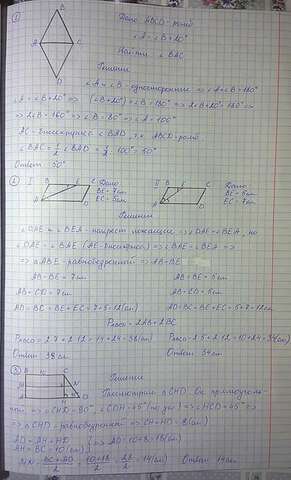 ① B
Дано ABCD-ромб
∠A = ∠B+20°
A C
Найти ∠BAC
D
Решение
∠A и ∠B - односторонние => ∠A+∠B=180°
∠A=∠B+20° => (∠B+20°)+∠B=180° => 2∠B+20°=180° =>
=> 2∠B=160° => ∠B=80° => ∠A=100°
AC - биссектриса ∠BAD, т.к. ABCD-ромб
∠BAC = 1/2 ∠BAD = 1/2 · 100° = 50°
Ответ 50°
② I B E C Дано BE=7см EC=5см
A D
II B E C Дано BE=5см EC=7см
A D
Решение
∠DAE и ∠BEA - накрест лежащие => ∠DAE=∠BEA, но
∠DAE=∠BAE (AE-биссектриса) => ∠BAE=∠BEA =>
=> △ABE - равнобедренный => AB=BE
AB=BE=7см AB=BE=5см
AB=CD=7см AB=CD=5см
AD=BC=BE+EC=7+5=12(см) AD=BC=BE+EC=5+7=12см
P ABCD = 2AB+2BC
P ABCD = 2·7+2·12=14+24=38(см) P ABCD = 2·5+2·12=10+24=34(см)
Ответ 38см Ответ 34см
③ B C
Решение
Рассмотрим △CHD. Он прямоуголь-
ный => ∠CHD=90°, ∠CDH=45° => ∠HCD=45° =>
=> △CHD - равнобедренный => CH=HD=8(см)
AD=AH+HD
AH=BC=10(см) => AD=10+8=18(см)
= BC+AD/2 = 10+18/2 = 28/2 = 14(см) Ответ 14см